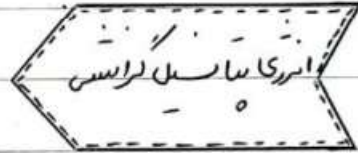 انرژی پتانسیل گرانشی